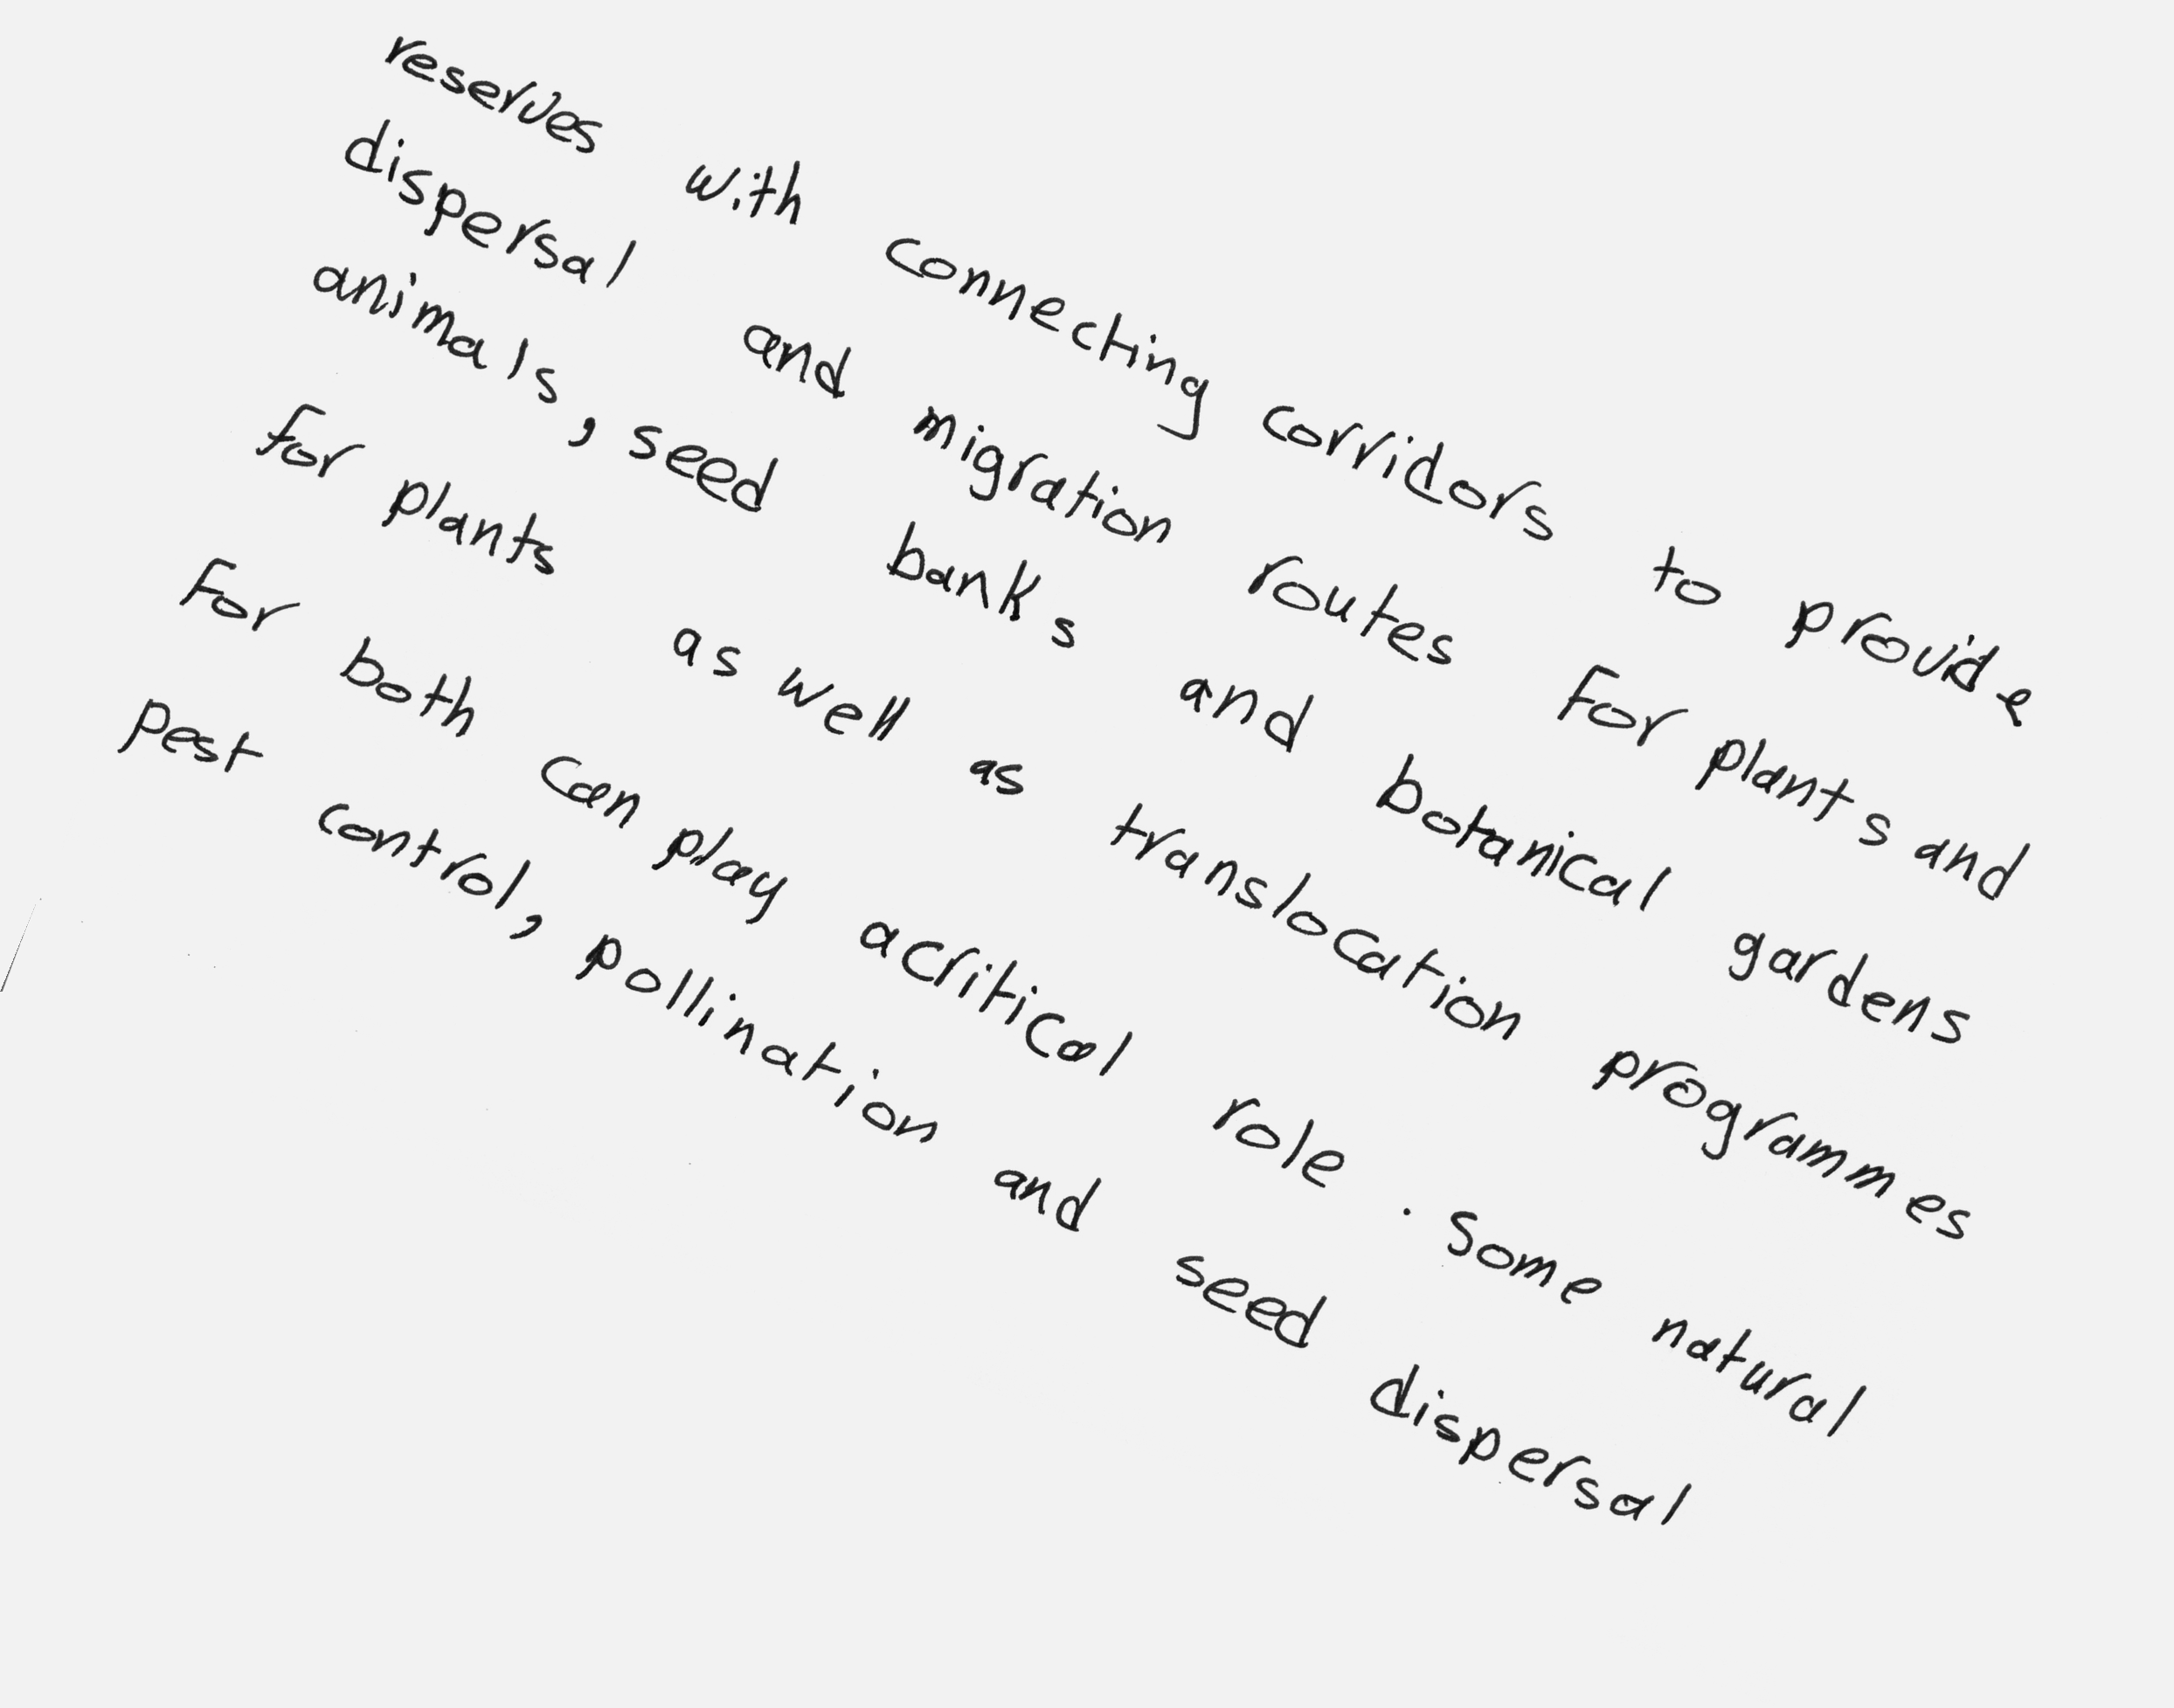 reserves with connecting corridors to provide
dispersal and migration routes For plants and
animals, seed banks and botanical gardens
For plants as well as translocation programmes
For both can play acritical role. Some natural
pest control, pollination and seed dispersal